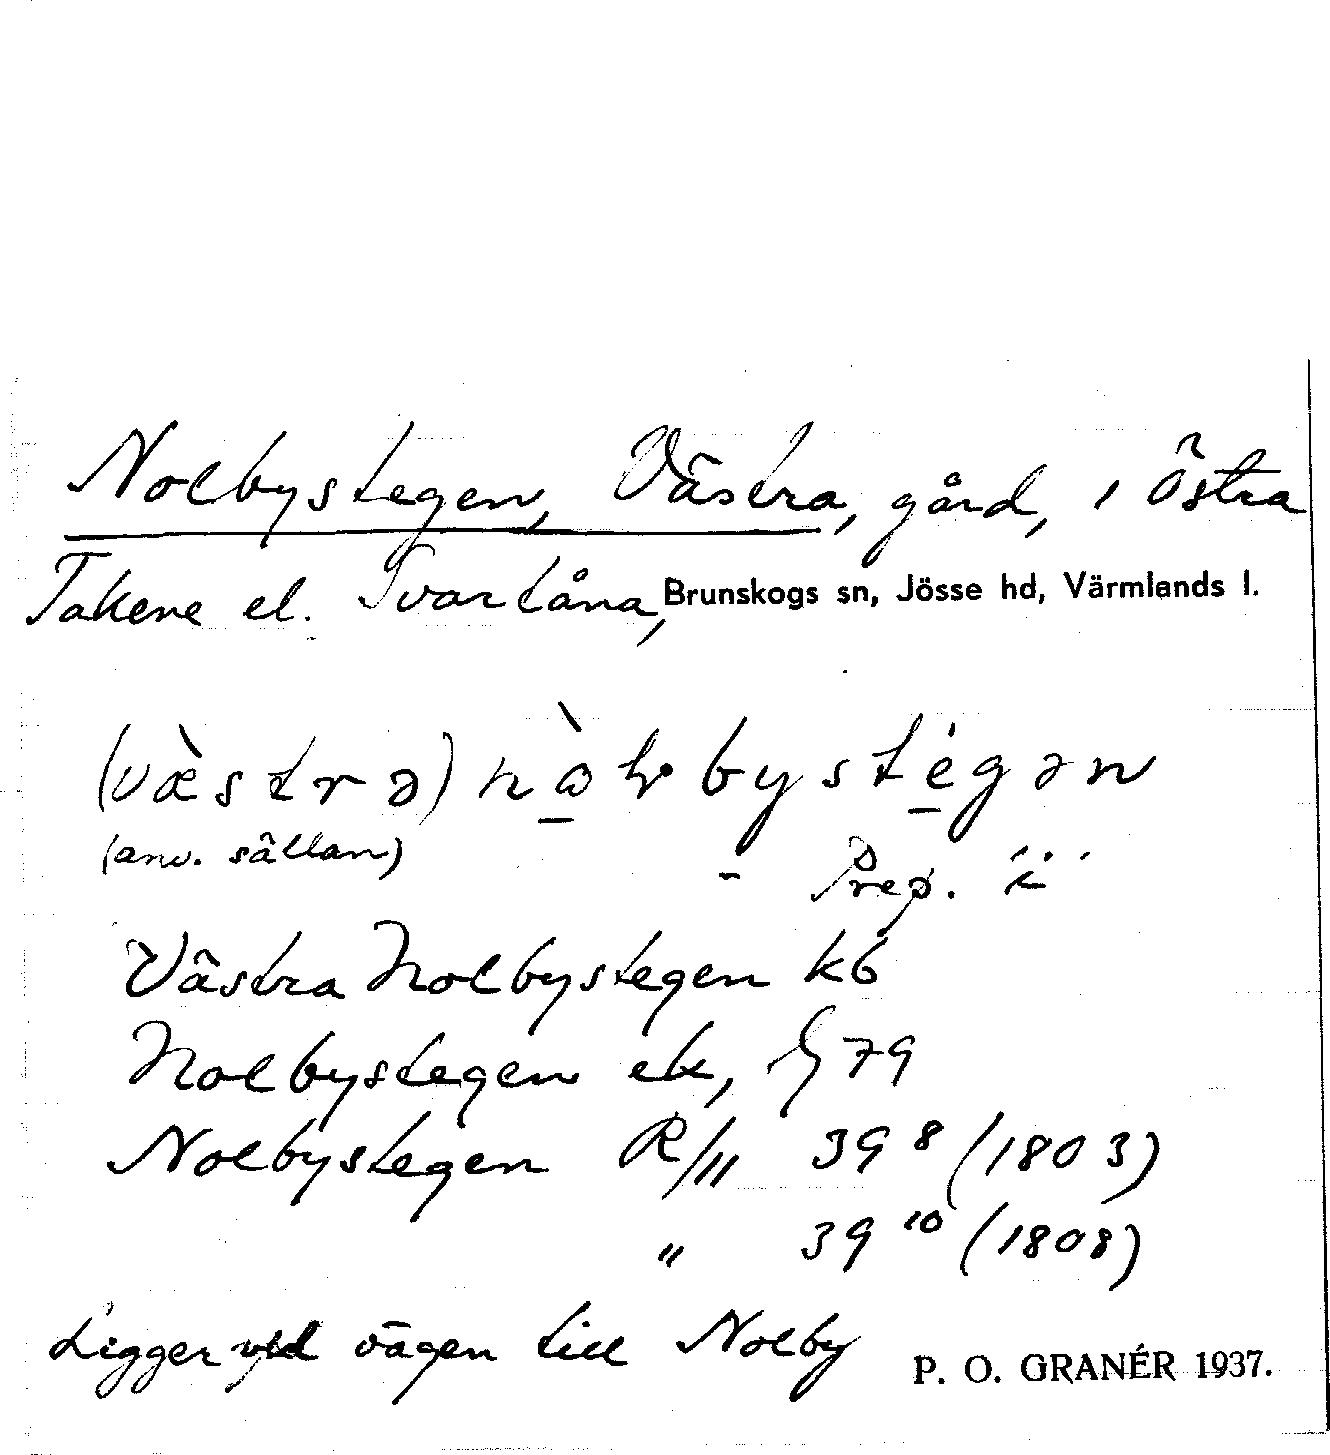 Nolbystegen, Västra, gård, i Östra
Takene el. Tvartåna, Brunskogs sn, Jösse hd, Värmlands l.
(væ̀strə)
(anv. sällan)
Prep. i
Västra Nolbystegen kb
Nolbystegen ek, G 79
Nolbystegen R/II 39⁸ (1803)
" 39¹⁰ (1808)
Ligger vid vägen till Nolby P. O. GRANÉR 1937.